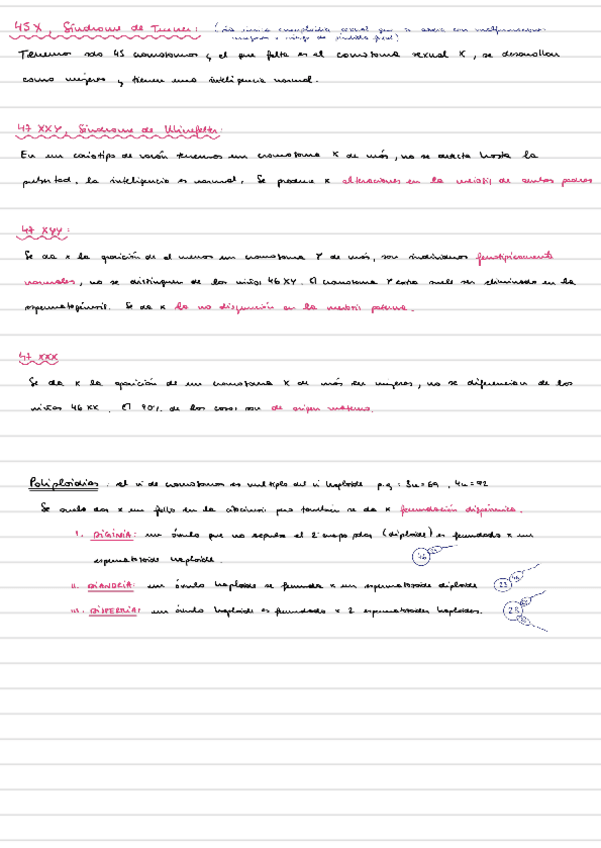 45 X, Síndrome de Turner: (única aneuploidía sexual que se asocia con malformaciones
Tenemos solo 45 cromosomas y el que falta es el cromosoma sexual X, se desarrollan
como mujeres y tienen una inteligencia normal.
47 XXY, Síndrome de Klinefelter:
En un cariotipo de varón tenemos un cromosoma X de más, no se detecta hasta la
pubertad. La inteligencia es normal. Se produce x alteraciones en la meiosis de ambos padres
47 XYY:
Se da x la aparición de al menos un cromosoma Y de más, son individuos fenotípicamente
normales, no se distinguen de los niños 46 XY. El cromosoma Y extra suele ser eliminado en la
espermatogénesis. Se da x la no disyunción en la meiosis paterna.
47 XXX
Se da x la aparición de un cromosoma X de más en mujeres, no se diferencian de las
niñas 46 XX. El 90% de los casos son de origen materno.
Poliploidías: el nº de cromosomas es múltiplo del nº haploide p.ej: 3n=69, 4n=92
Se suele dar x un fallo en la citocinesis pero también se da x fecundación dispérmica.
I. DIGINIA: un óvulo que no expulsa el 2º corpo polar (diploide) es fecundado x un
espermatozoide haploide. 46
II. DIANDRIA: un óvulo haploide se fecunda x un espermatozoide diploide 23 46
III. DISPERMIA: un óvulo haploide es fecundado x 2 espermatozoides haploides. 23